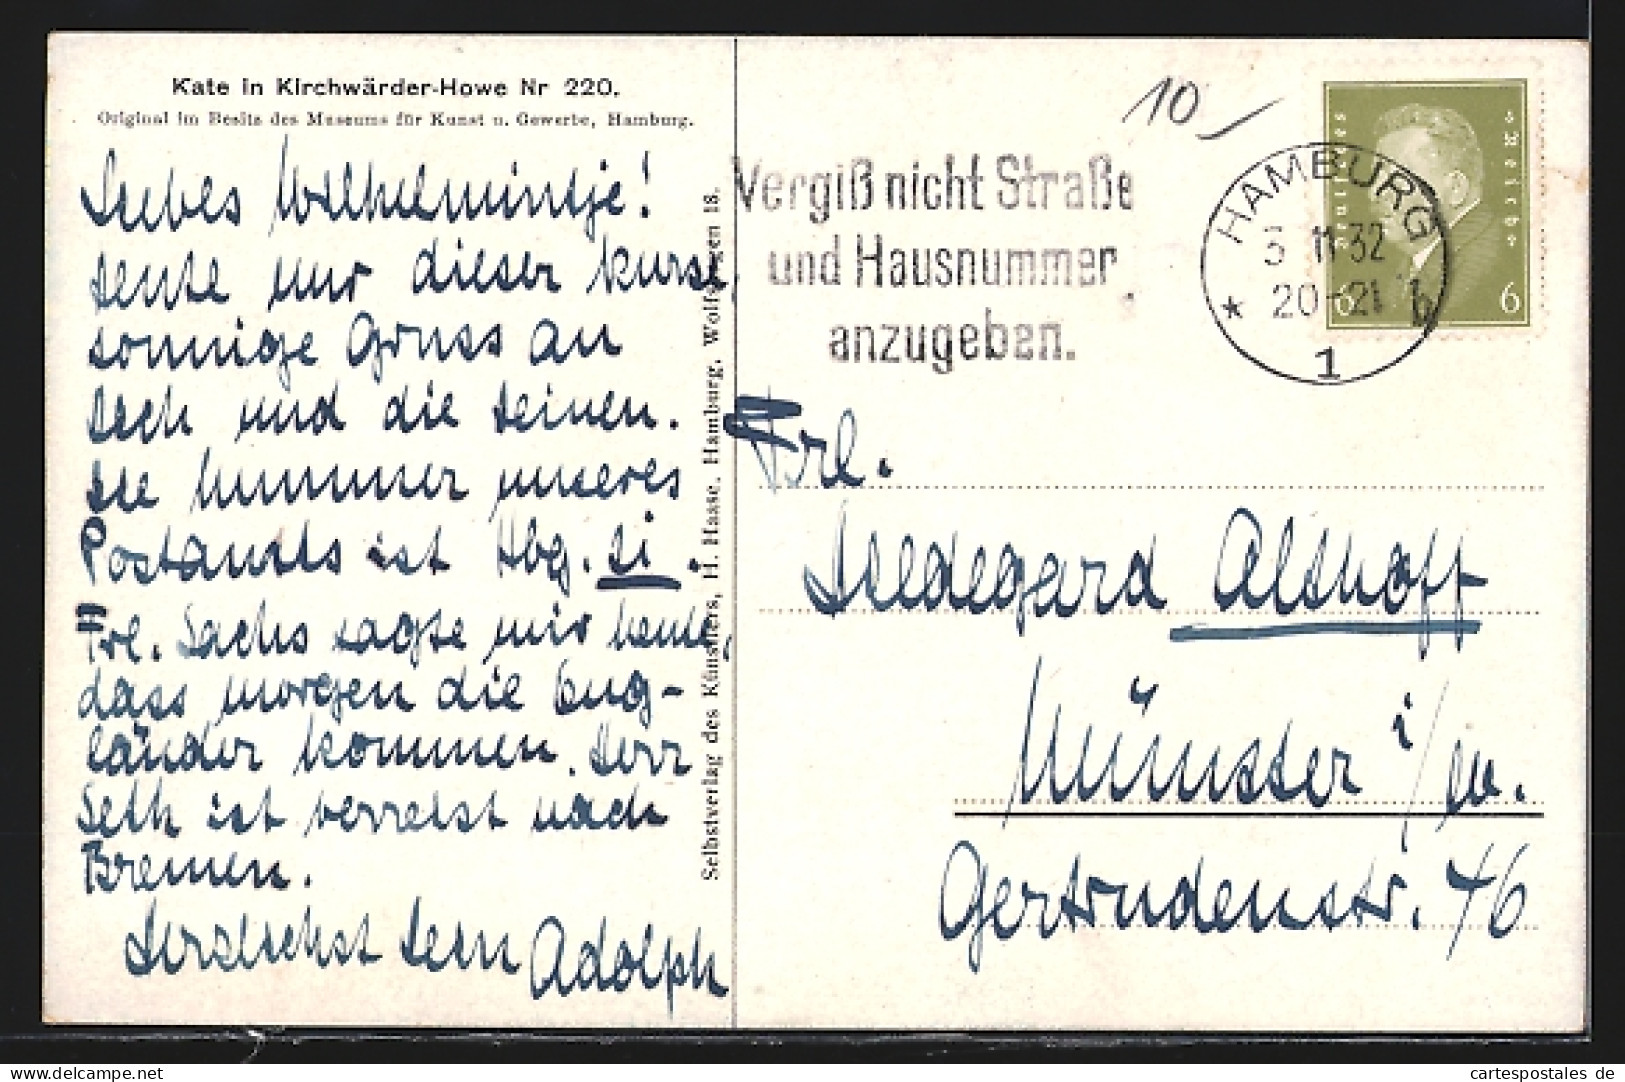 Kate in Kirchwärder-Howe Nr 220.
Original im Besitz des Museums für Kunst u. Gewerbe, Hamburg.
Liebes Wilhelmintje!
heute nur dieser kurse,
sonnige Gruss an
dich und die deinen.
die Nummer unseres
Postamts ist Hbg.
Frl. Sachs sagte mir heute,
dass morgen die Eng-
länder kommen. Herr
Seth ist verreist nach
Bremen.
Herzlichst Dein Adolph
Selbstverlag des Künstlers, H. Hasse, Hamburg, Wolfshagen 18.
10
Vergiß nicht Straße
und Hausnummer
anzugeben.
HAMBURG
11 32
20-21
1
Deutsches Reich
6 6
Frl.
Hildegard Althoff
Münster i/W.
Gertrudenstr. 46
cartespostales de